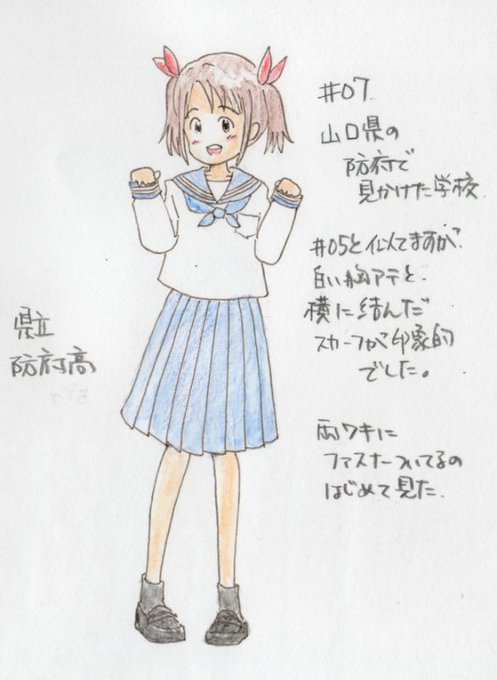 #07
山口県の
防府で
見かけた学校
#05と似てますが、
白い胸アテと、
横に結んだ
スカーフが印象的
でした。
両ワキに
ファスナーついてるの
はじめて見た.
県立
防府高